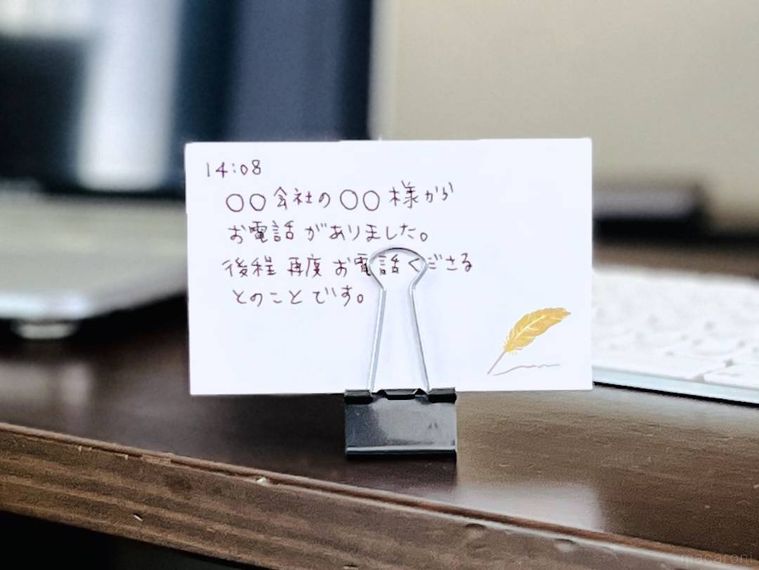 14:08
○○会社の○○様から
お電話がありました。
後程再度お電話くださる
とのことです。
macaroni